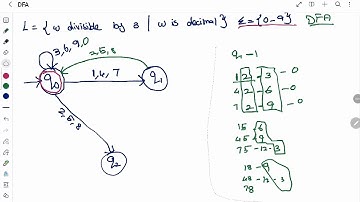 DFA
L = { w divisible by 3 | w is decimal } Σ = {0-9} DFA
3, 6, 9, 0
2, 5, 8
q0
1, 4, 7
q1
2, 5, 8
q2
q1 - 1
12 - 3 - 0
42 - 6 - 0
72 - 9 - 0
15 - 6
45 - 9
75 - 12 - 3
18 - 9
48 - 12 - 3
78